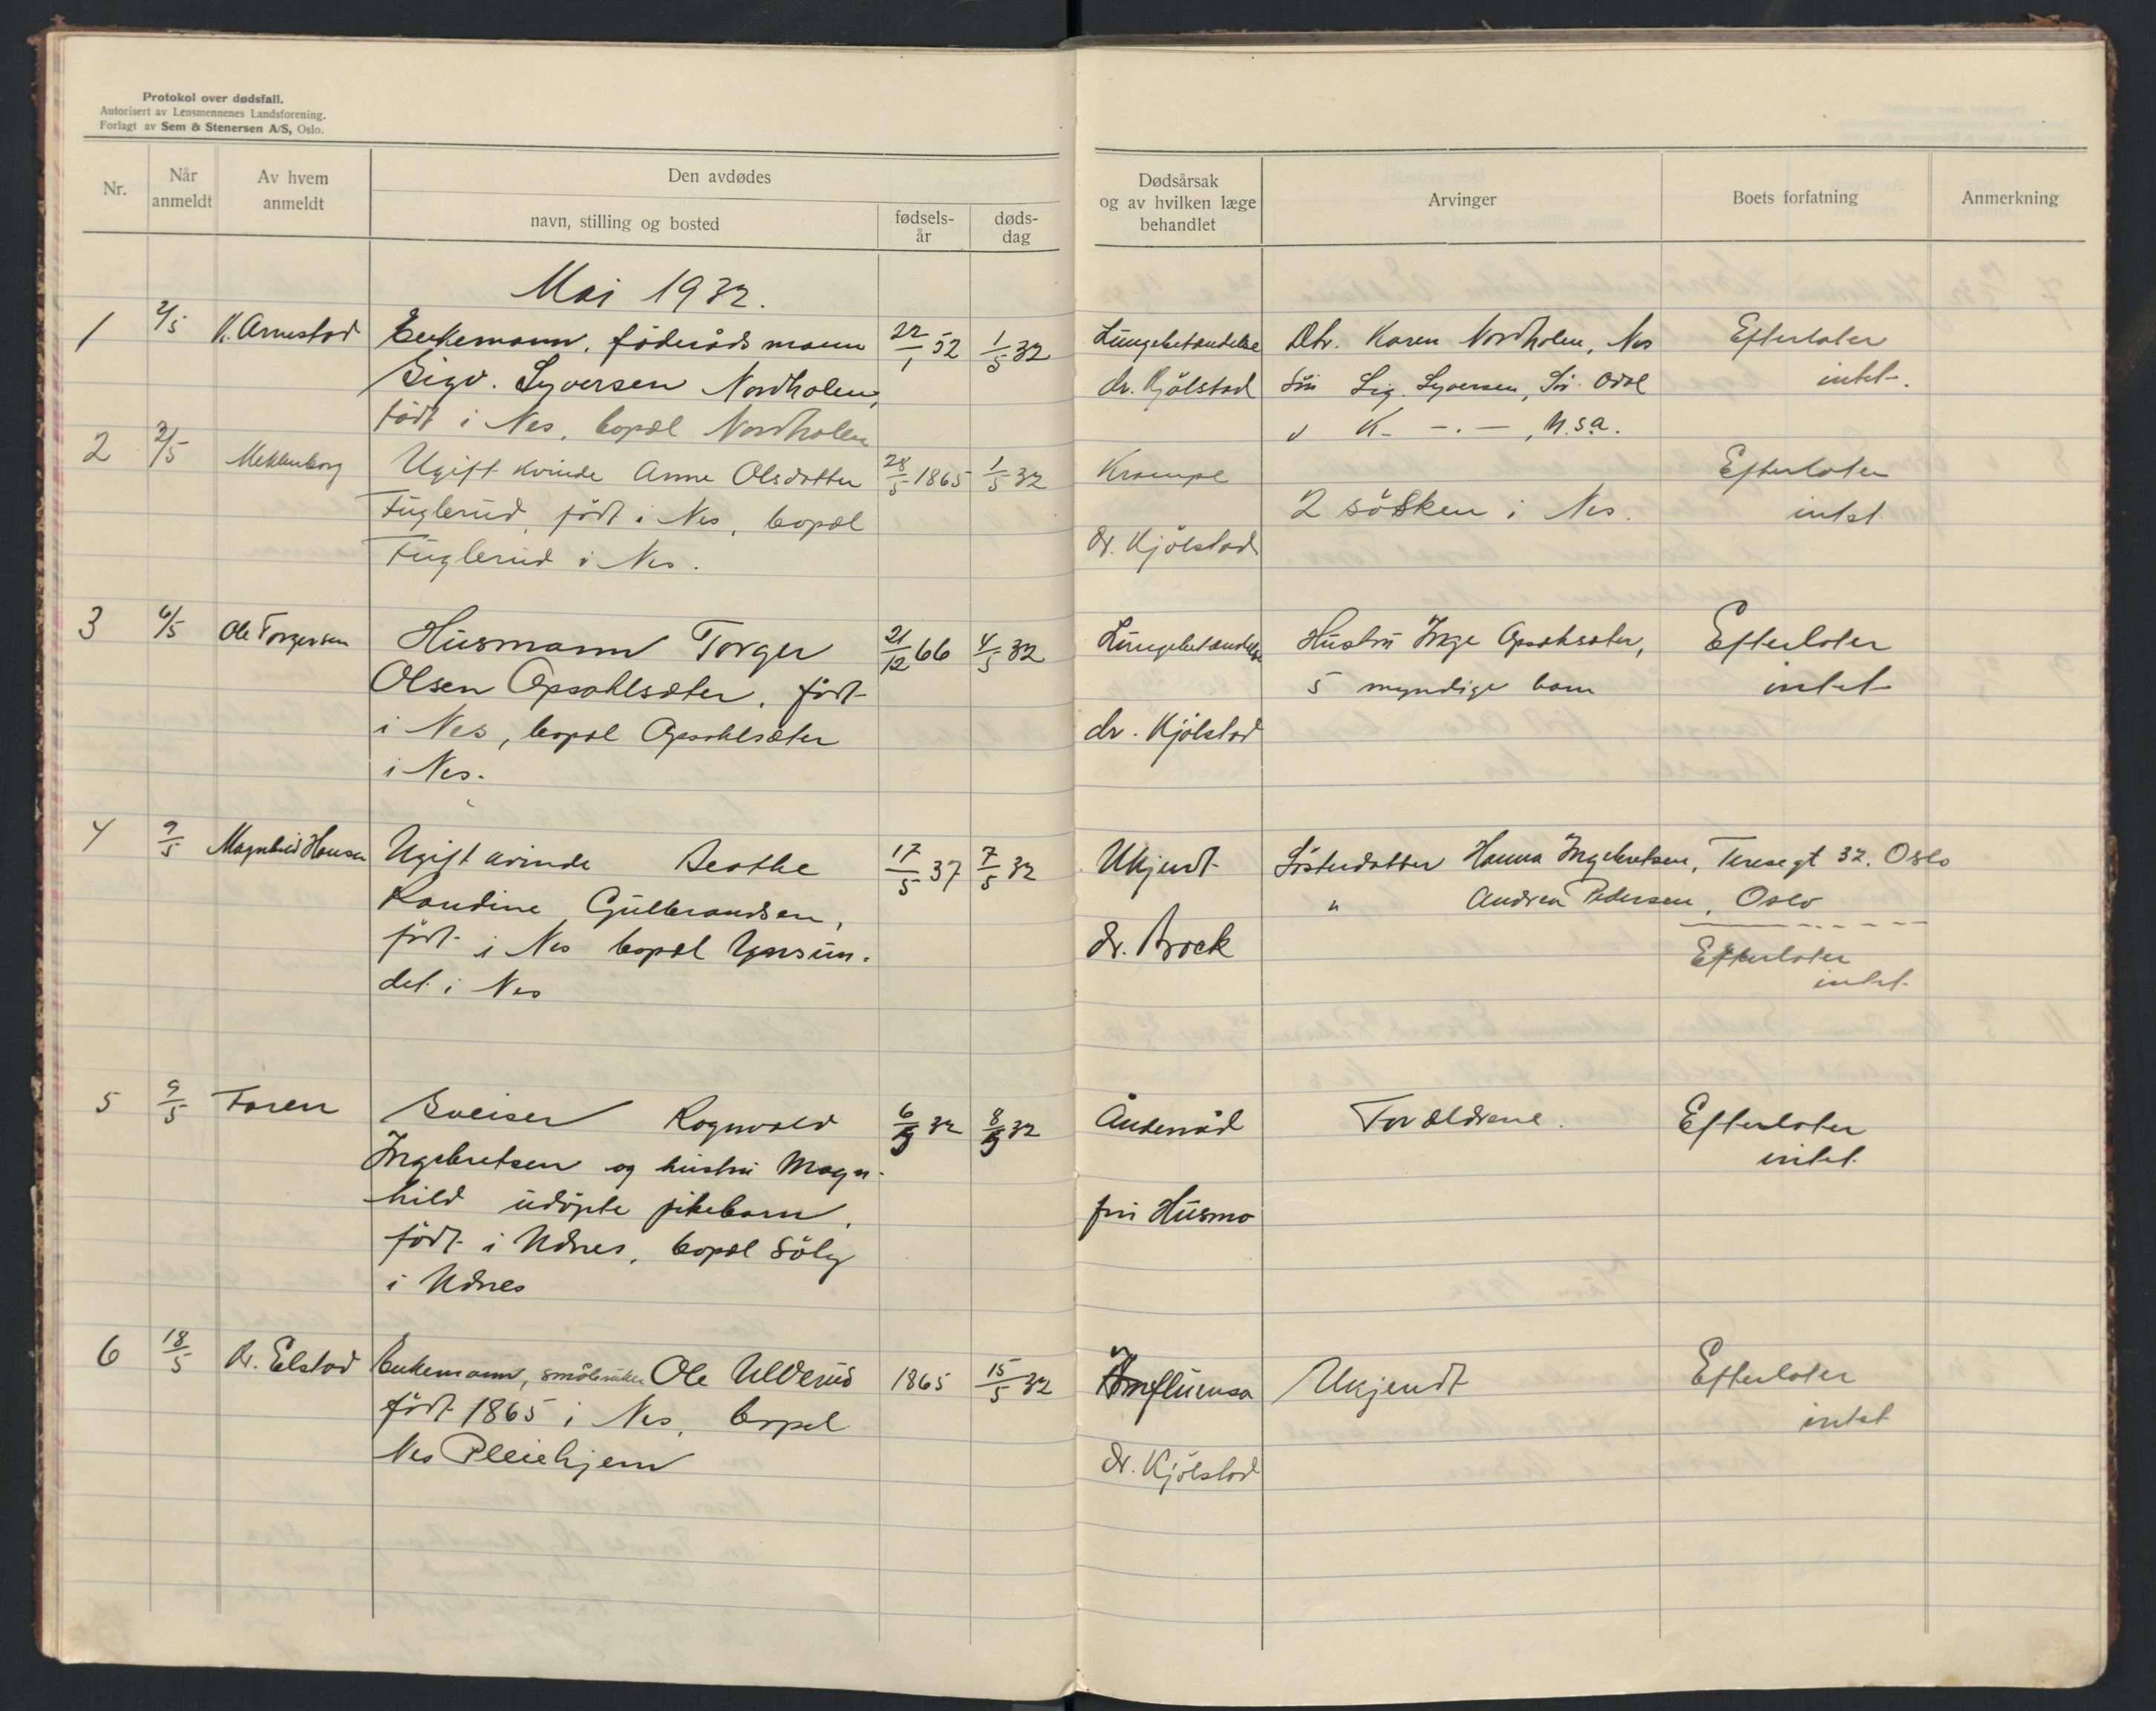 Protokol over dødsfall.
Autorisert av Lensmennenes Landsforening.
Forlagt av Sem & Stenersen A/S, Oslo.
Nr.
Når anmeldt
Av hvem anmeldt
Den avdødes
navn, stilling og bosted
fødsels-år
døds-dag
Dødsårsak og av hvilken læge behandlet
Arvinger
Boets forfatning
Anmerkning
Mai 1932.
1 2/5 K. Arnestad Enkemann, föderådsmann 22/1 52 1/5 32 Lungebetændelse Dtr. Karen Nordholen, Nes Efterlater
Sigv. Syversen Nordholen, dr. Kjölstad Sön Sig. Syversen, Sö. Odal intet.
födt i Nes, bopæl Nordholen " K. -.-, U.S.a.
2 2/5 Meklenborg Ugift kvinde Anne Olsdatter 28/5 1865 1/5 32 Krampe Efterlater
Fuglerud, födt i Nes, bopæl 2 søsken i Nes. intet
Fuglerud i Nes. dr. Kjölstad
3 6/5 Ole Torgersen Husmann Torger 21/12 66 4/5 32 Lungebetændelse Hustru Inge Opsahlsæter, Efterlater
Olsen Opsahlsæter, födt 5 myndige barn intet
i Nes, bopæl Opsahlsæter dr. Kjölstad
i Nes.
4 9/5 Magnhild Hansen Ugift kvinde Beathe 17/5 37 7/5 32 Ukjendt Søsterdatter Hanna Ingebretsen, Teresegt 32. Oslo
Randine Gulbrandsen, " Andrea Pedersen, Oslo
födt i Nes bopæl Yssun- dr. Brock Efterlater
det i Nes intet
5 9/5 Faren Sveiser Ragnvald 6/5 32 8/5 32 Åndenöd Forældrene. Efterlater
Ingebretsen og hustru Magn- intet
hild udöpte pikebarn, frü Husmo
födt i Udnes, bopæl Söly
i Udnes
6 18/5 Kr. Elstad Enkemann, småbruker Ole Ullerud 1865 15/5 32 Influensa Ukjendt Efterlater
födt 1865 i Nes, bopæl intet
Nes Pleiehjem dr. Kjölstad